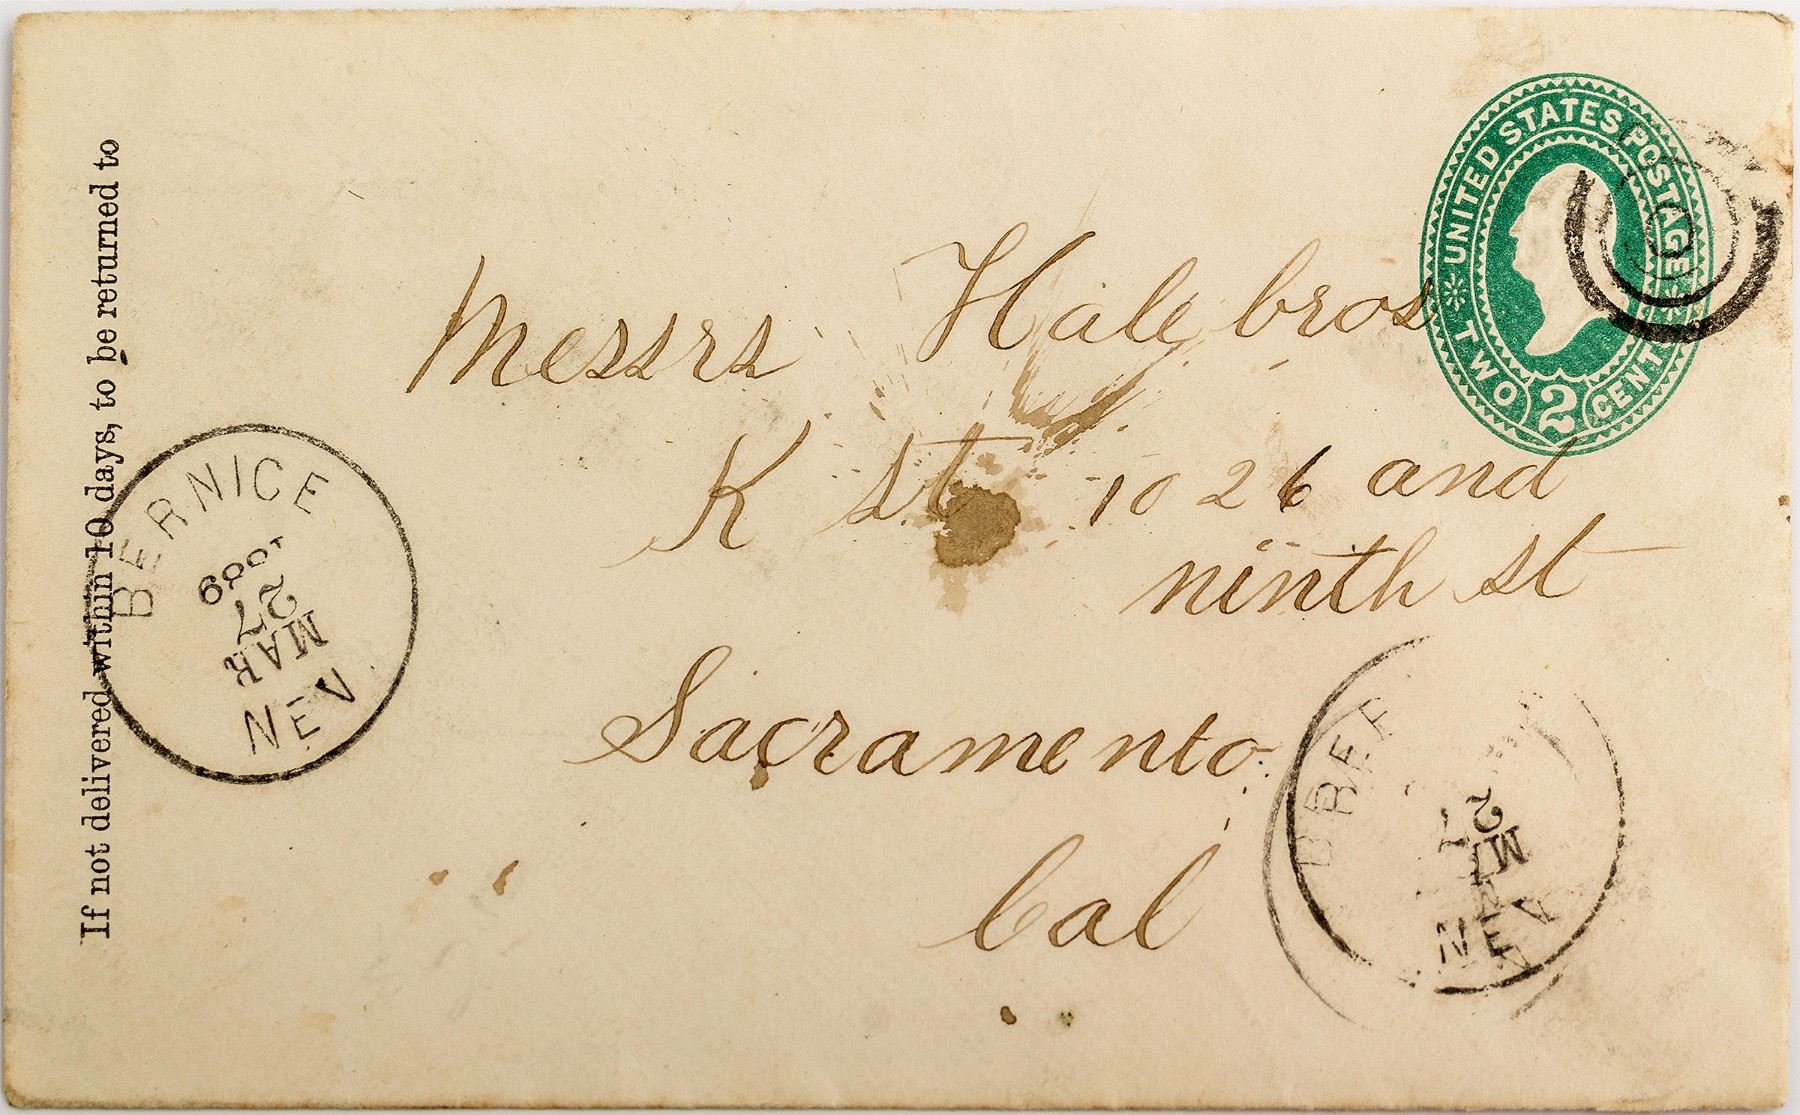 If not delivered within 10 days, to be returned to
UNITED STATES POSTAGE
TWO 2 CENTS
Messrs Hale bros
K st 1026 and
ninth st
Sacramento
Cal
BERNICE
1889
27
MAR
NEV
27
NEV